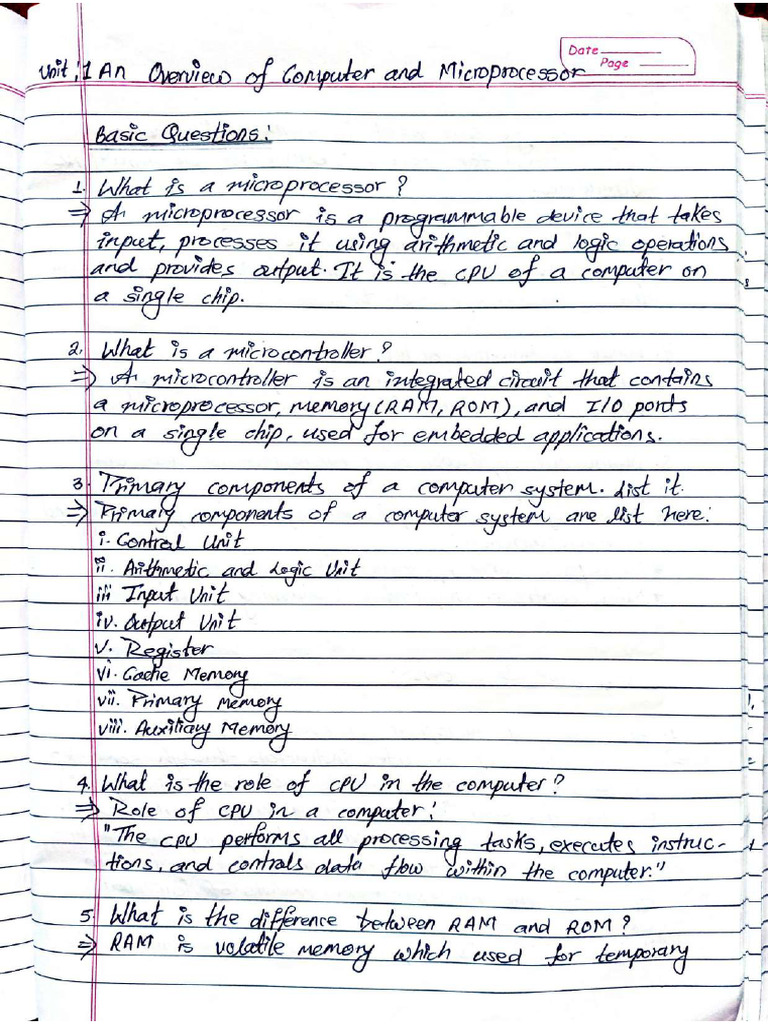 Date
Page
Unit:1 An Overview of Computer and Microprocessor
Basic Questions:
1. What is a microprocessor?
⇒ A microprocessor is a programmable device that takes
input, processes it using arithmetic and logic operations
and provides output. It is the CPU of a computer on
a single chip.
2. What is a microcontroller?
⇒ A microcontroller is an integrated circuit that contains
a microprocessor, memory (RAM, ROM), and I/O ports
on a single chip, used for embedded applications.
3. Primary components of a computer system. List it.
⇒ Primary components of a computer system are list here:
i. Control Unit
ii. Arithmetic and Logic Unit
iii Input Unit
iv. Output Unit
v. Register
vi. Cache Memory
vii. Primary Memory
viii. Auxiliary Memory
4. What is the role of CPU in the computer?
⇒ Role of CPU in a computer:
"The CPU performs all processing tasks, executes instruc-
tions, and controls data flow within the computer."
5. What is the difference between RAM and ROM?
⇒ RAM is volatile memory which used for temporary